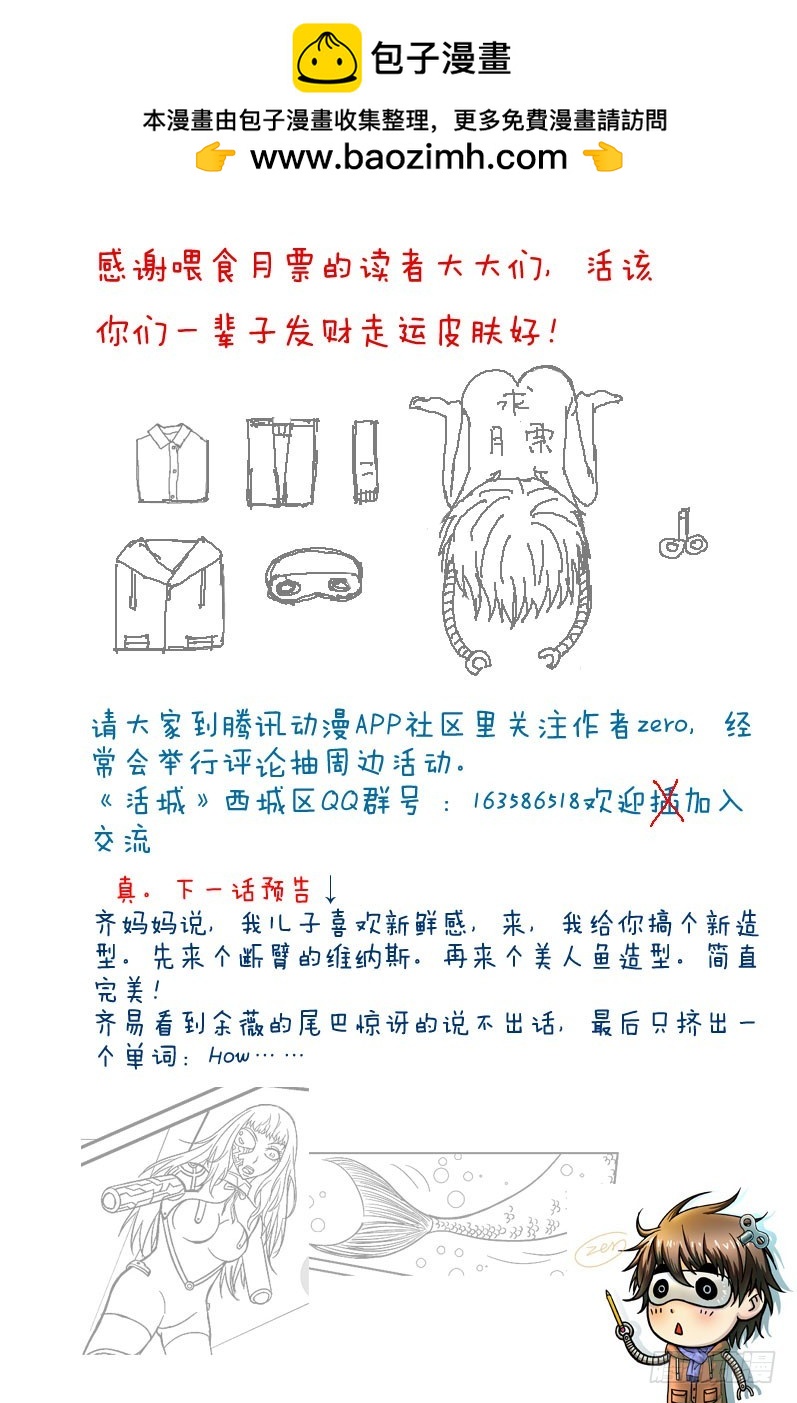 包子漫畫
本漫畫由包子漫畫收集整理，更多免費漫畫請訪問
👉 www.baozimh.com 👈
感谢喂食月票的读者大大们，活该
你们一辈子发财走运皮肤好！
求
月票
请大家到腾讯动漫APP社区里关注作者zero，经
常会举行评论抽周边活动。
《活城》西城区QQ群号：163586518欢迎插加入
交流
真。下一话预告↓
齐妈妈说，我儿子喜欢新鲜感，来，我给你搞个新造
型。先来个断臂的维纳斯。再来个美人鱼造型。简直
完美！
齐易看到余薇的尾巴惊讶的说不出话，最后只挤出一
个单词：How……